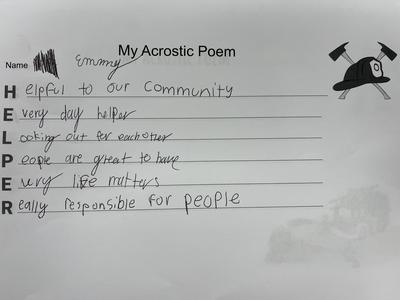 My Acrostic Poem
Name Emmy
Helpful to our Community
Every day helper
Looking out for each other
People are great to have
Every life matters
Really responsible for people